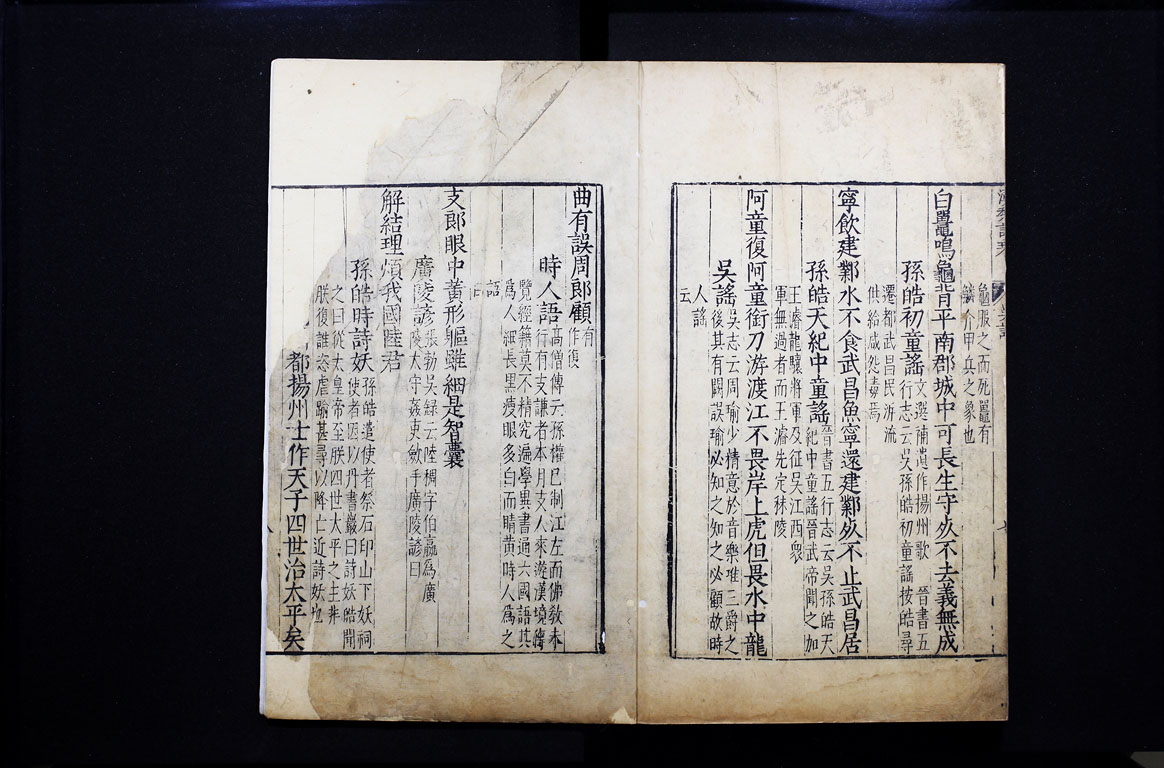 白鼉鳴龜背平南郡城中可長生守死不去義無成
龜服之而死鼉有
鱗介甲兵之象也
孫皓初童謠
文選補遺作揚州歌 晉書五
行志云吳孫皓初童謠按皓尋
遷都武昌民泝流
供給咸怨毒焉
寧飲建鄴水不食武昌魚寧還建鄴死不止武昌居
孫皓天紀中童謠
晉書五行志云吳孫皓天
紀中童謠晉武帝聞之加
王濬龍驤將軍及征吳江西衆
軍無過者而王濬先定秣陵
阿童復阿童銜刀游渡江不畏岸上虎但畏水中龍
吳謠
吳志云周瑜少精意於音樂雖三爵之
後其有闕誤瑜必知之知之必顧故時
人謠
云
曲有誤周郎顧
有
作復
時人語
高僧傳云孫權已制江左而佛教未
行有支謙者本月支人來遊漢境博
覽經籍莫不精究遍學異書通六國語其
爲人細長黑瘦眼多白而睛黃時人爲之
語
曰
支郎眼中黃形軀雖細是智囊
廣陵諺
張勃吳錄云陸稠字伯羸爲廣
陵太守姦吏斂手廣陵諺曰
解結理煩我國陸君
孫皓時詩妖
孫皓遣使者祭石印山下妖祠
使者因以丹書巖曰詩妖皓聞
之曰從太皇帝至朕四世太平之主非
朕復誰恣虐踰甚尋以降亡近詩妖也
都揚州士作天子四世治太平矣
八